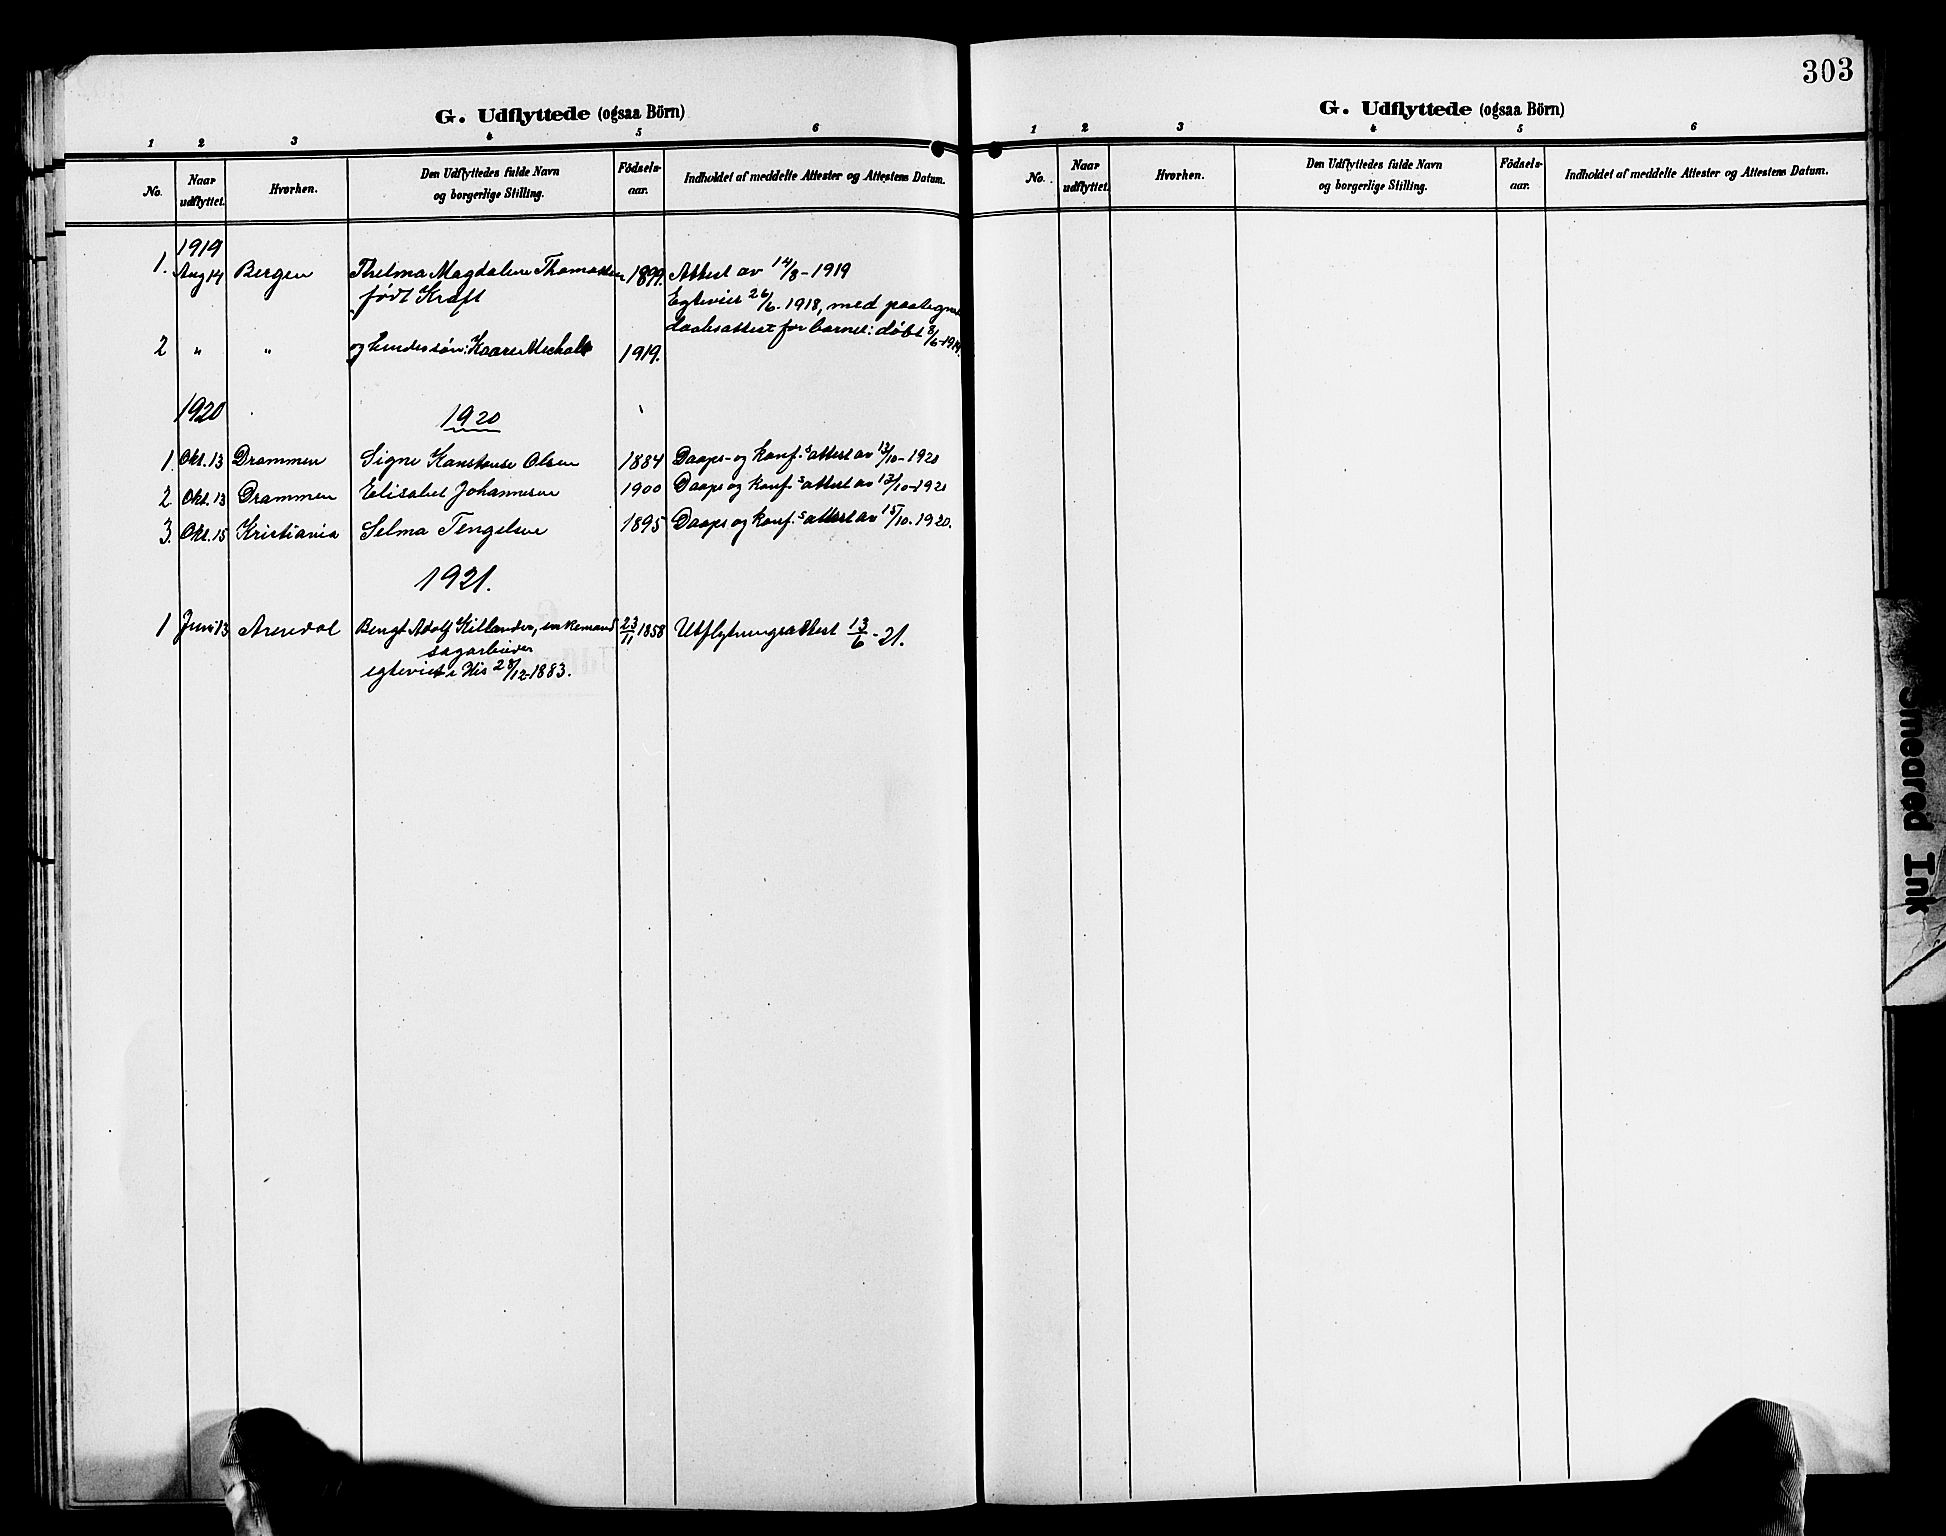 303
G. Udflyttede (ogsaa Börn)
1 2 3 4 5 6
No. Naar udflyttet. Hvorhen. Den Udflyttedes fulde Navn og borgerlige Stilling. Födsels-aar. Indholdet af meddelte Attester og Attestens Datum.
1919
1. Aug 14 Bergen Thelma Magdalene Thomassen 1899. Attest av 14/8-1919
født Kraft Egteviet 26/6. 1918, med paategnet
daabsattest for barnet: døbt 8/6-1919.
2 " " og hendes søn: Kaare 1919.
1920 1920
1. Okt. 13 Drammen Signe Konstanse Olsen 1884 Daaps- og konf.s attest av 13/10-1920
2. Okt. 13 Drammen Elisabet Johannesen 1900 Daaps og konf.s attest av 13/10-1920
3. Okt. 15 Kristiania Selma Tengelsen 1895 Daaps og konf.s attest av 15/10. 1920.
1921.
1 Juni 13 Arendal Bengt Adolf Killander, enkemand 23/11 1858 Utflytningsattest 13/6-21.
sagarbeider
egteviet i His 28/12-1883.
G. Udflyttede (ogsaa Börn)
1 2 3 4 5 6
No. Naar udflyttet. Hvorhen. Den Udflyttedes fulde Navn og borgerlige Stilling. Födsels-aar. Indholdet af meddelte Attester og Attestens Datum.
Smeared Ink